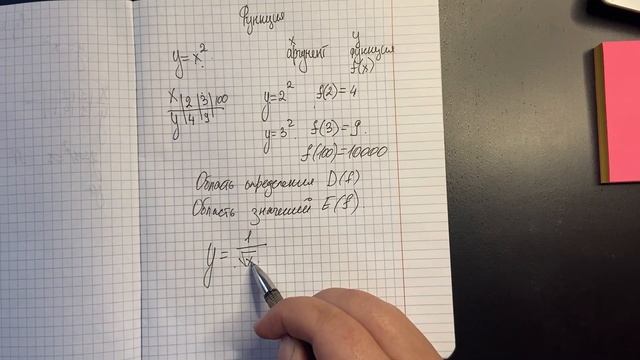 Функция
y = x²
x y
аргумент функция
f(x)
x 2 3 100
y 4 9
y=2² f(2)=4
y=3² f(3)=9.
f(100)=10000
Область определения D(f)
Область значений E(f)
y = 1/√x